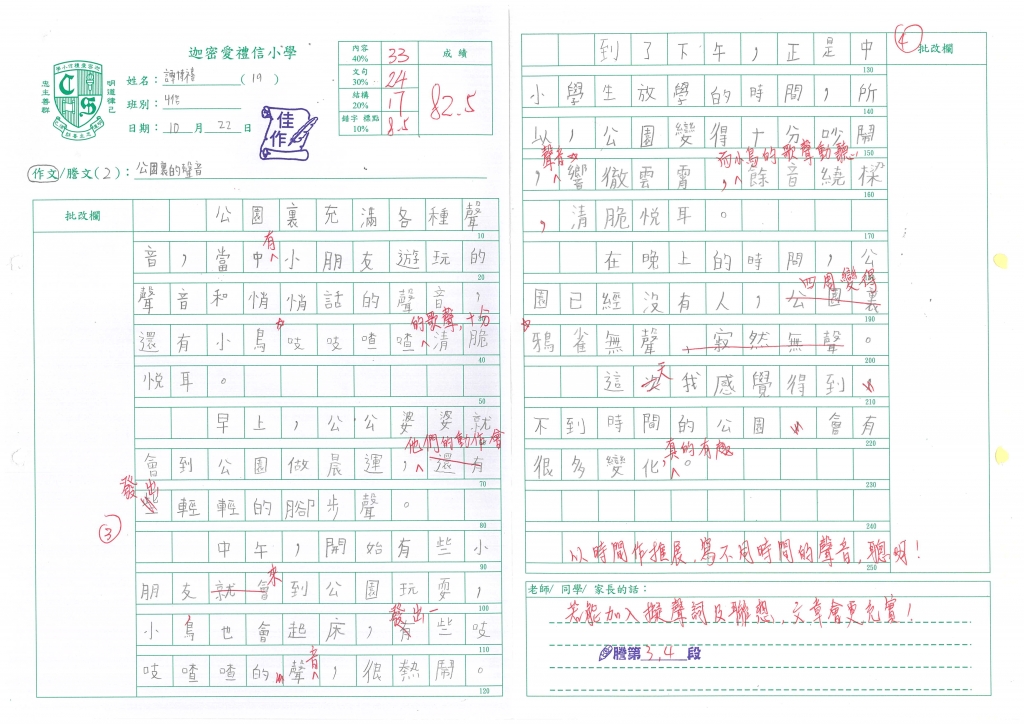 迦密愛禮信小學
忠主善群
明道律己
姓名：(19)
班別：
日期：10月22日
佳作
內容 40% 33
文句 30% 24
結構 20% 17
錯字 標點 10% 8.5
成績
82.5
作文/謄文(2)：公園裏的聲音
批改欄
公園裏充滿各種聲
音，當中有小朋友遊玩的
聲音和悄悄話的聲音，
還有小鳥吱吱喳喳的歌聲，十分清脆
悅耳。
早上，公公婆婆就
會到公園做晨運，他們的動作會還有
發出些輕輕的腳步聲。
③
中午，開始有些小
朋友就會來到公園玩耍，
小鳥也會起床，發出一有些吱
吱喳喳的聲音，很熱鬧。
10
20
40
50
70
80
90
100
110
120
批改欄
④
到了下午，正是中
小學生放學的時間，所
以，公園變得十分吵鬧
，聲音響徹雲霄，而小鳥的歌聲動聽，餘音繞樑
，清脆悅耳。
在晚上的時間，公
園已經沒有人，公園裏四周變得
鴉雀無聲，寂然無聲。
這次天我感覺得到
不到時間的公園會有
很多變化，真的有趣。
130
140
150
160
170
190
200
210
220
230
250
以時間作推展，寫不同時間的聲音，聰明！
老師/ 同學/ 家長的話：
若能加入擬聲詞及聯想，文章會更充實！
謄第3,4段